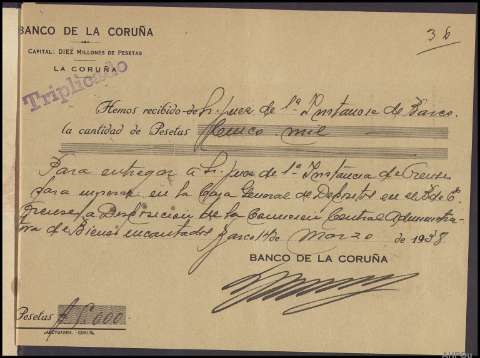 BANCO DE LA CORUÑA
36
CAPITAL: DIEZ MILLONES DE PESETAS
LA CORUÑA
Triplicado
Hemos recibido de Sr. Juez de 1ª Instancia de Barco.
la cantidad de Pesetas cinco mil
Para entregar a Sr. Juez de 1ª Instancia de Orense
para ingresar en la Caja General de Depositos en el
Orense a Disposicion de la Comision Central Administra-
dora de Bienes incautados Barco 14 de Marzo de 1938
BANCO DE LA CORUÑA
Pesetas # 5.000